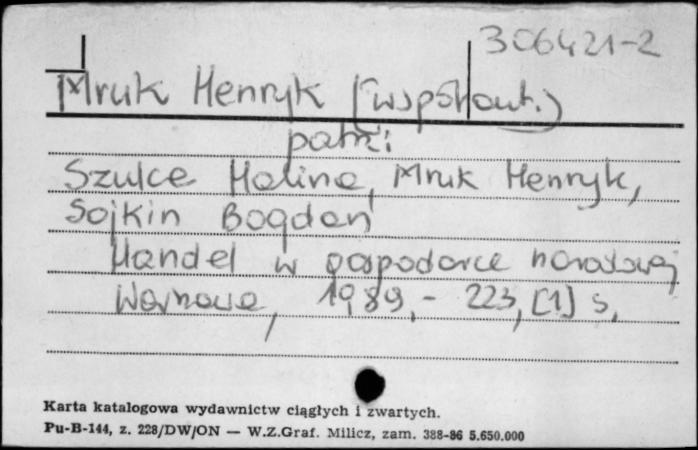 306421-2
Mruk Henryk (współaut.)
patrz:
Szulce Halina, Mruk Henryk,
Sojkin Bogdan
Handel w gospodarce narodowej
Warszawa, 1989,- 223, [1] s.
Karta katalogowa wydawnictw ciągłych i zwartych.
Pu-B-144, z. 228/DW/ON — W.Z.Graf. Milicz, zam. 388-86 5.650.000